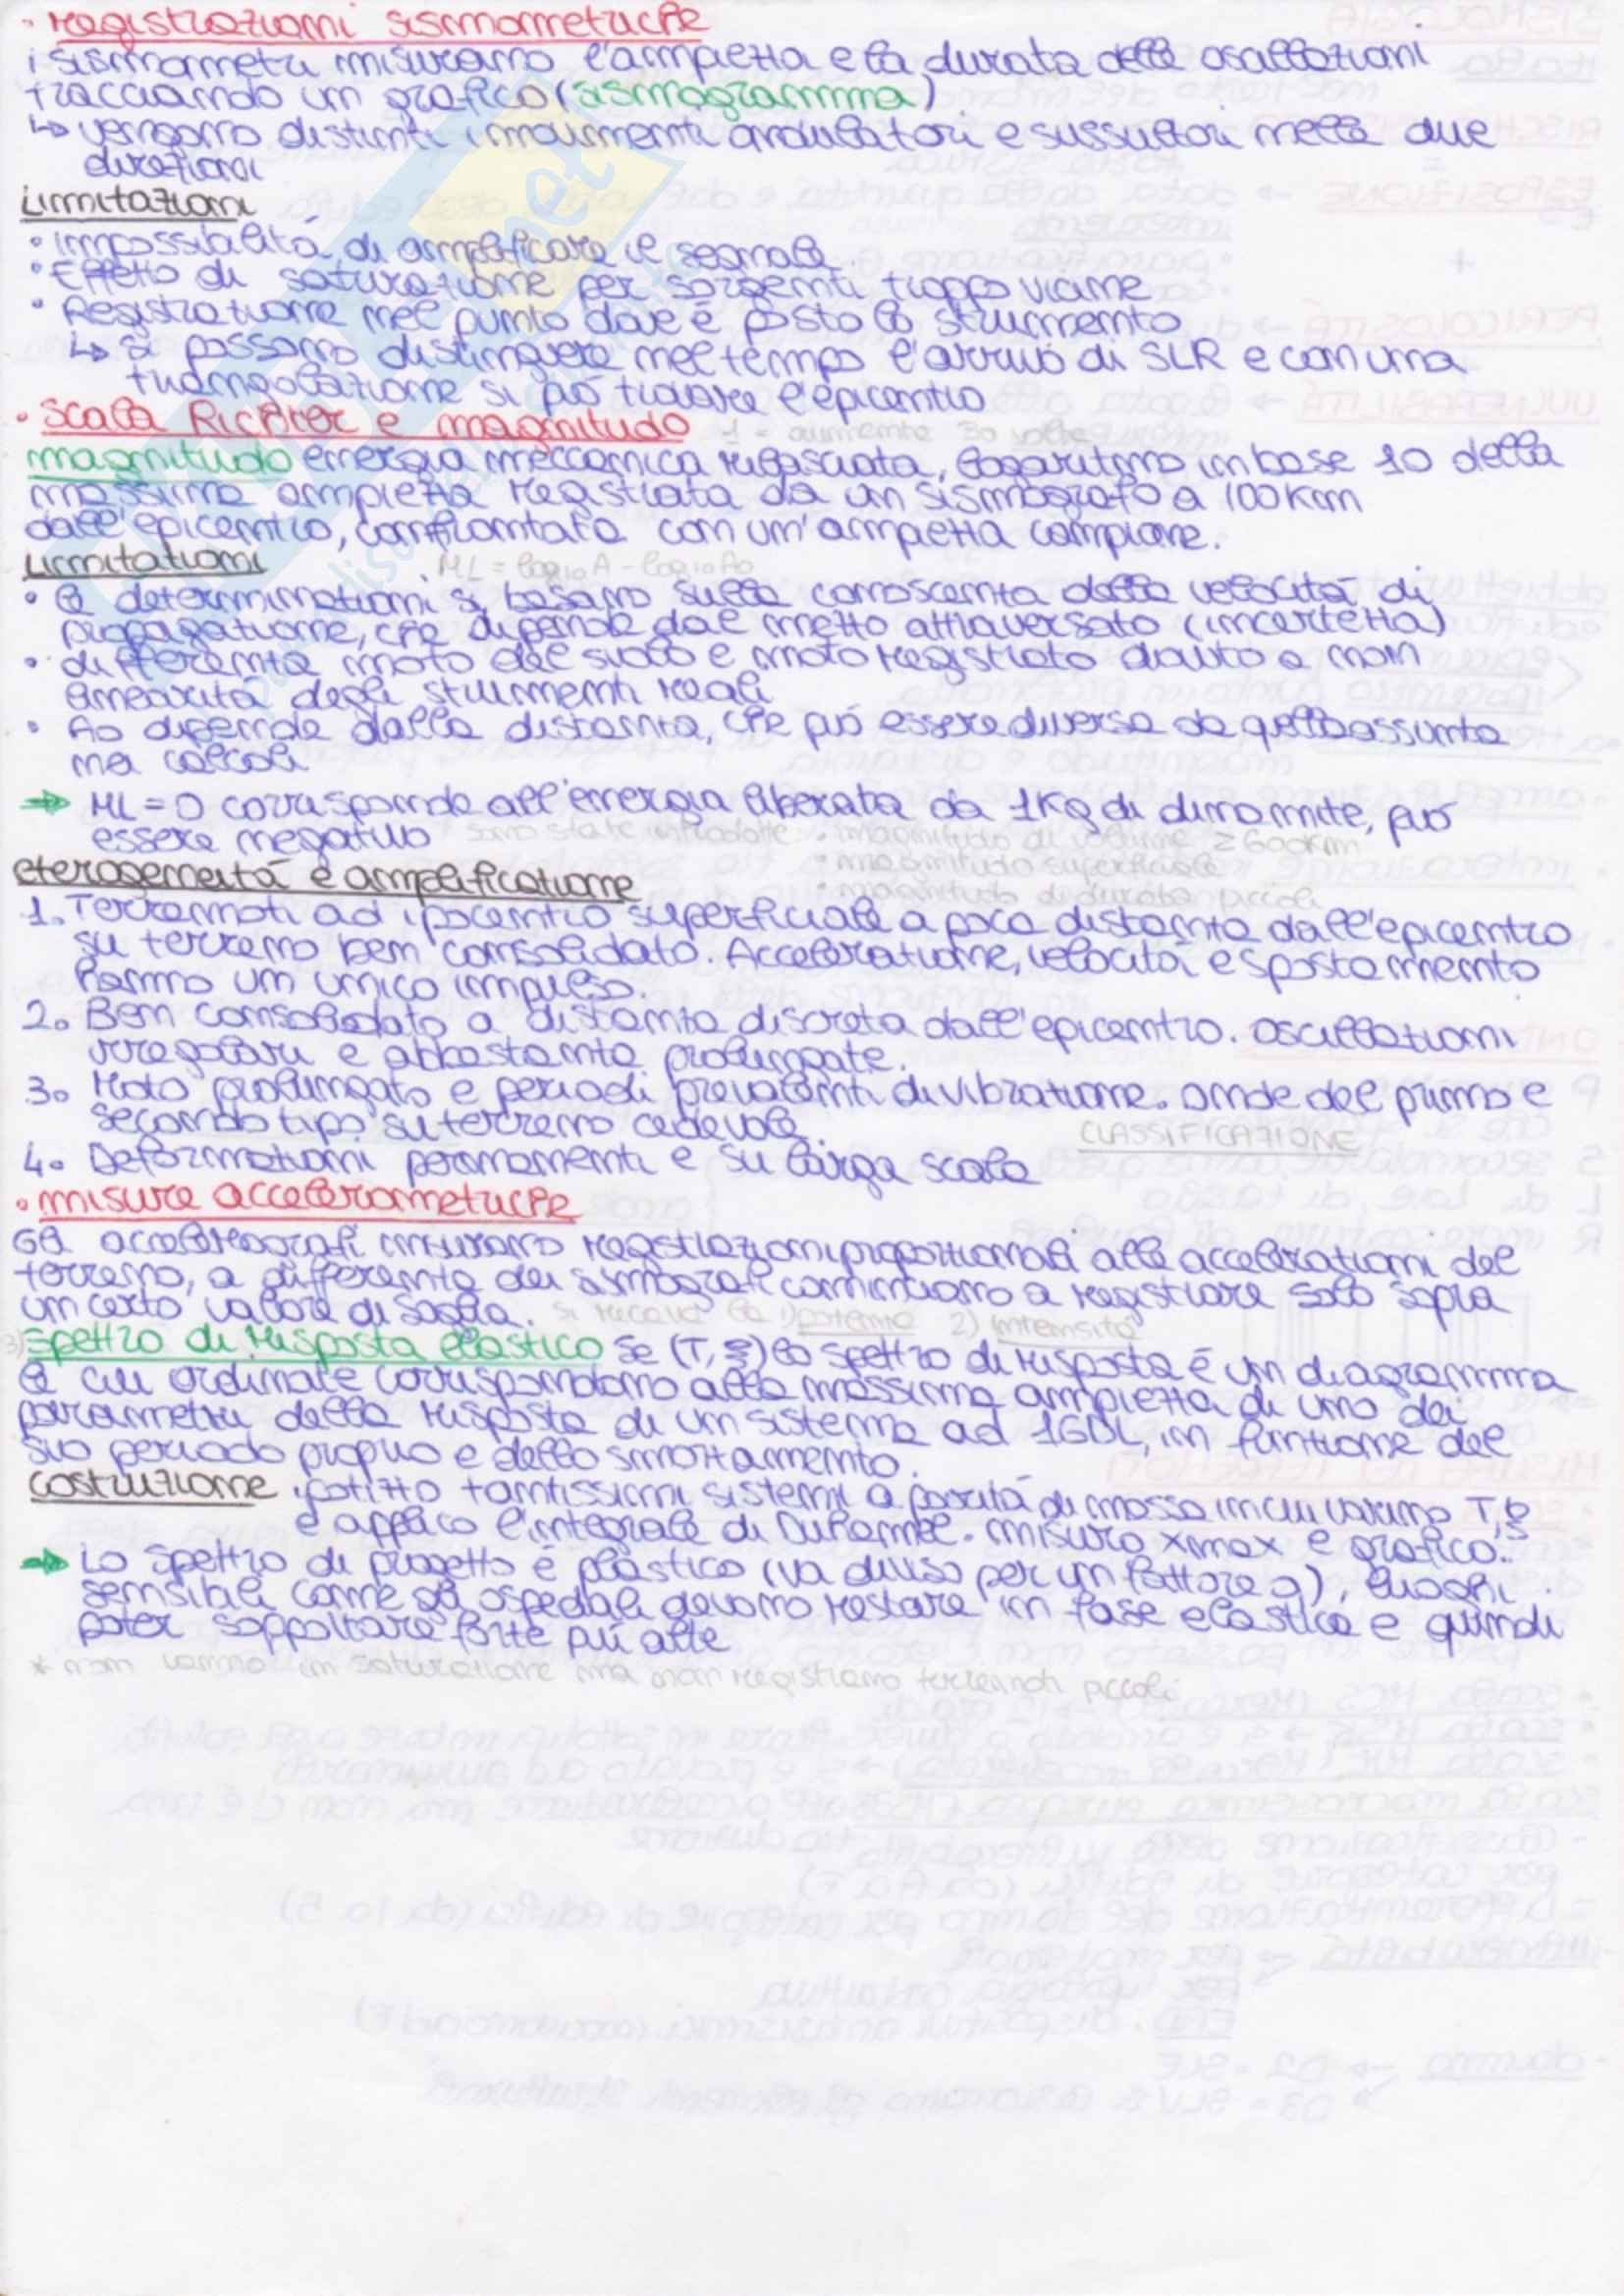 • registrazioni sismometriche
i sismometri misurano l'ampiezza e la durata delle oscillazioni
tracciando un grafico (sismogramma)
↳ vengono distinti i movimenti ondulatori e sussultori nelle due
direzioni
Limitazioni
• Impossibilitá di amplificare il segnale
• Effetto di saturazione per sorgenti troppo vicine
• Registrazione nel punto dove é posto lo strumento
↳ si possono distinguere nel tempo l'arrivo di SLR e con una
triangolazione si puó trovare l'epicentro
• Scala Richter e magnitudo
1 = aumento 30 volte
magnitudo energia meccanica rilasciata, logaritmo in base 10 della
massima ampiezza registrata da un sismografo a 100 Km
dall'epicentro, confrontata con un'ampiezza campione.
Limitazioni ML = log10 A - log10 Ao
• le determinazioni si basano sulla conoscenza della velocitá di
propagazione, che dipende dal mezzo attraversato (incertezza)
• differenza moto del suolo e moto registrato dovuto a non
linearitá degli strumenti reali
• Ao dipende dalla distanza, che puó essere diversa da quella assunta
nei calcoli
⇒ ML = 0 corrisponde all'energia liberata da 1Kg di dinamite, puó
essere negativo sono state introdotte • magnitudo di volume ≥ 600km
• magnitudo superficiale
• magnitudo di durata piccoli
eterogeneitá e amplificazione
1. Terremoti ad ipocentro superficiale a poca distanza dall'epicentro
su terreno ben consolidato. Accelerazione, velocitá e spostamento
hanno un unico impulso.
2. Ben consolidato a distanza discreta dall'epicentro. oscillazioni
irregolari e abbastanza prolungate.
3. Moto prolungato e periodi prevalenti di vibrazione. onde del primo e
secondo tipo su terreno cedevole.
CLASSIFICAZIONE
4. Deformazioni permanenti e su larga scala
• misure accelerometriche
Gli accelerografi misurano registrazioni proporzionali alle accelerazioni del
terreno, a differenza dei sismografi cominciano a registrare solo sopra
un certo valore di soglia. si ricava la 1) potenza 2) intensitá
3) spettro di risposta elastico Se (T, ξ) lo spettro di risposta é un diagramma
le cui ordinate corrispondono alla massima ampiezza di uno dei
parametri della risposta di un sistema ad 1GDL, in funzione del
suo periodo proprio e dello smorzamento.
costruzione ipotizzo tantissimi sistemi a paritá di massa in cui variano T, ξ
e applico l'integrale di Duhamel. misuro xmax e grafico.
⇒ Lo spettro di progetto é plastico (va diviso per un fattore q), luoghi
sensibili come gli ospedali devono restare in fase elastica e quindi
poter sopportare forze piú alte
* non vanno in saturazione ma non registrano terremoti piccoli